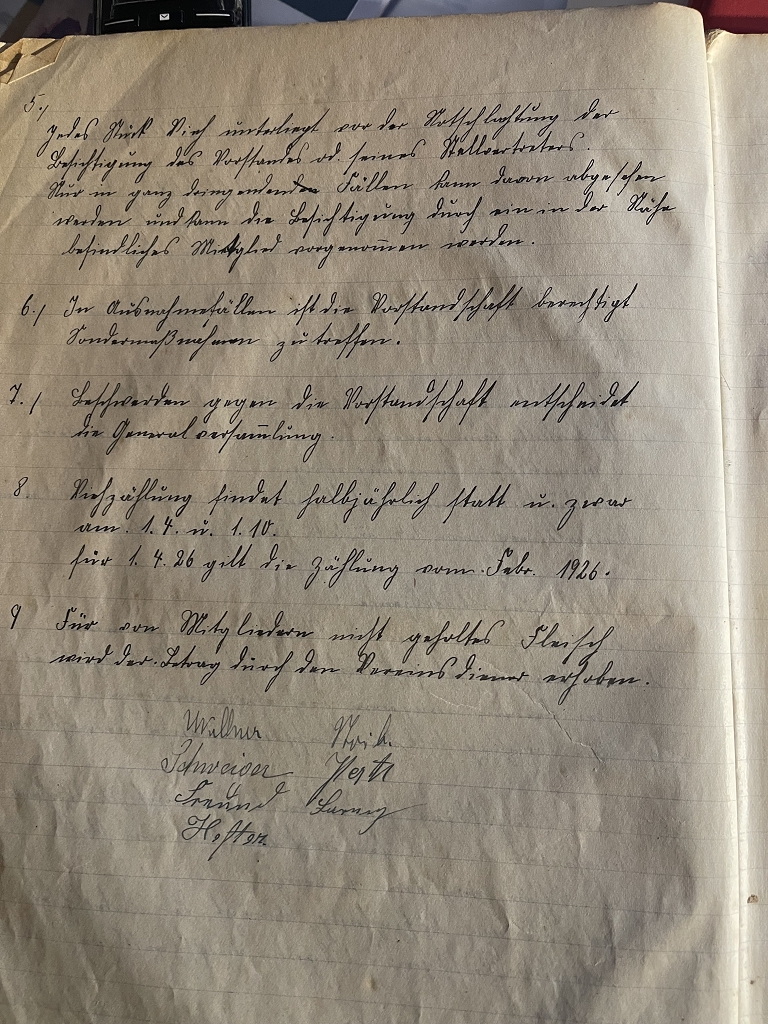 5./
Jedes Stück Vieh unterliegt vor der Notschlachtung der
Besichtigung des Vorstandes od. seines Stellvertreters.
Nur in ganz dringenden Fällen kann davon abgesehen
werden und kann die Besichtigung durch ein in der Nähe
befindliches Mitglied vorgenommen werden.
6./ In Ausnahmefällen ist die Vorstandschaft berechtigt
Sondermaßnahmen zu treffen.
7./ Beschwerden gegen die Vorstandschaft entscheidet
die Generalversammlung.
8. Viehzählung findet halbjährlich statt u. zwar
am 1.4. u. 1.10.
für 1.4.26 gilt die Zählung vom Febr. 1926.
9 Für von Mitgliedern nicht geholtes Fleisch
wird der Betrag durch den Vereinsdiener erhoben.
Schweizer
Freund